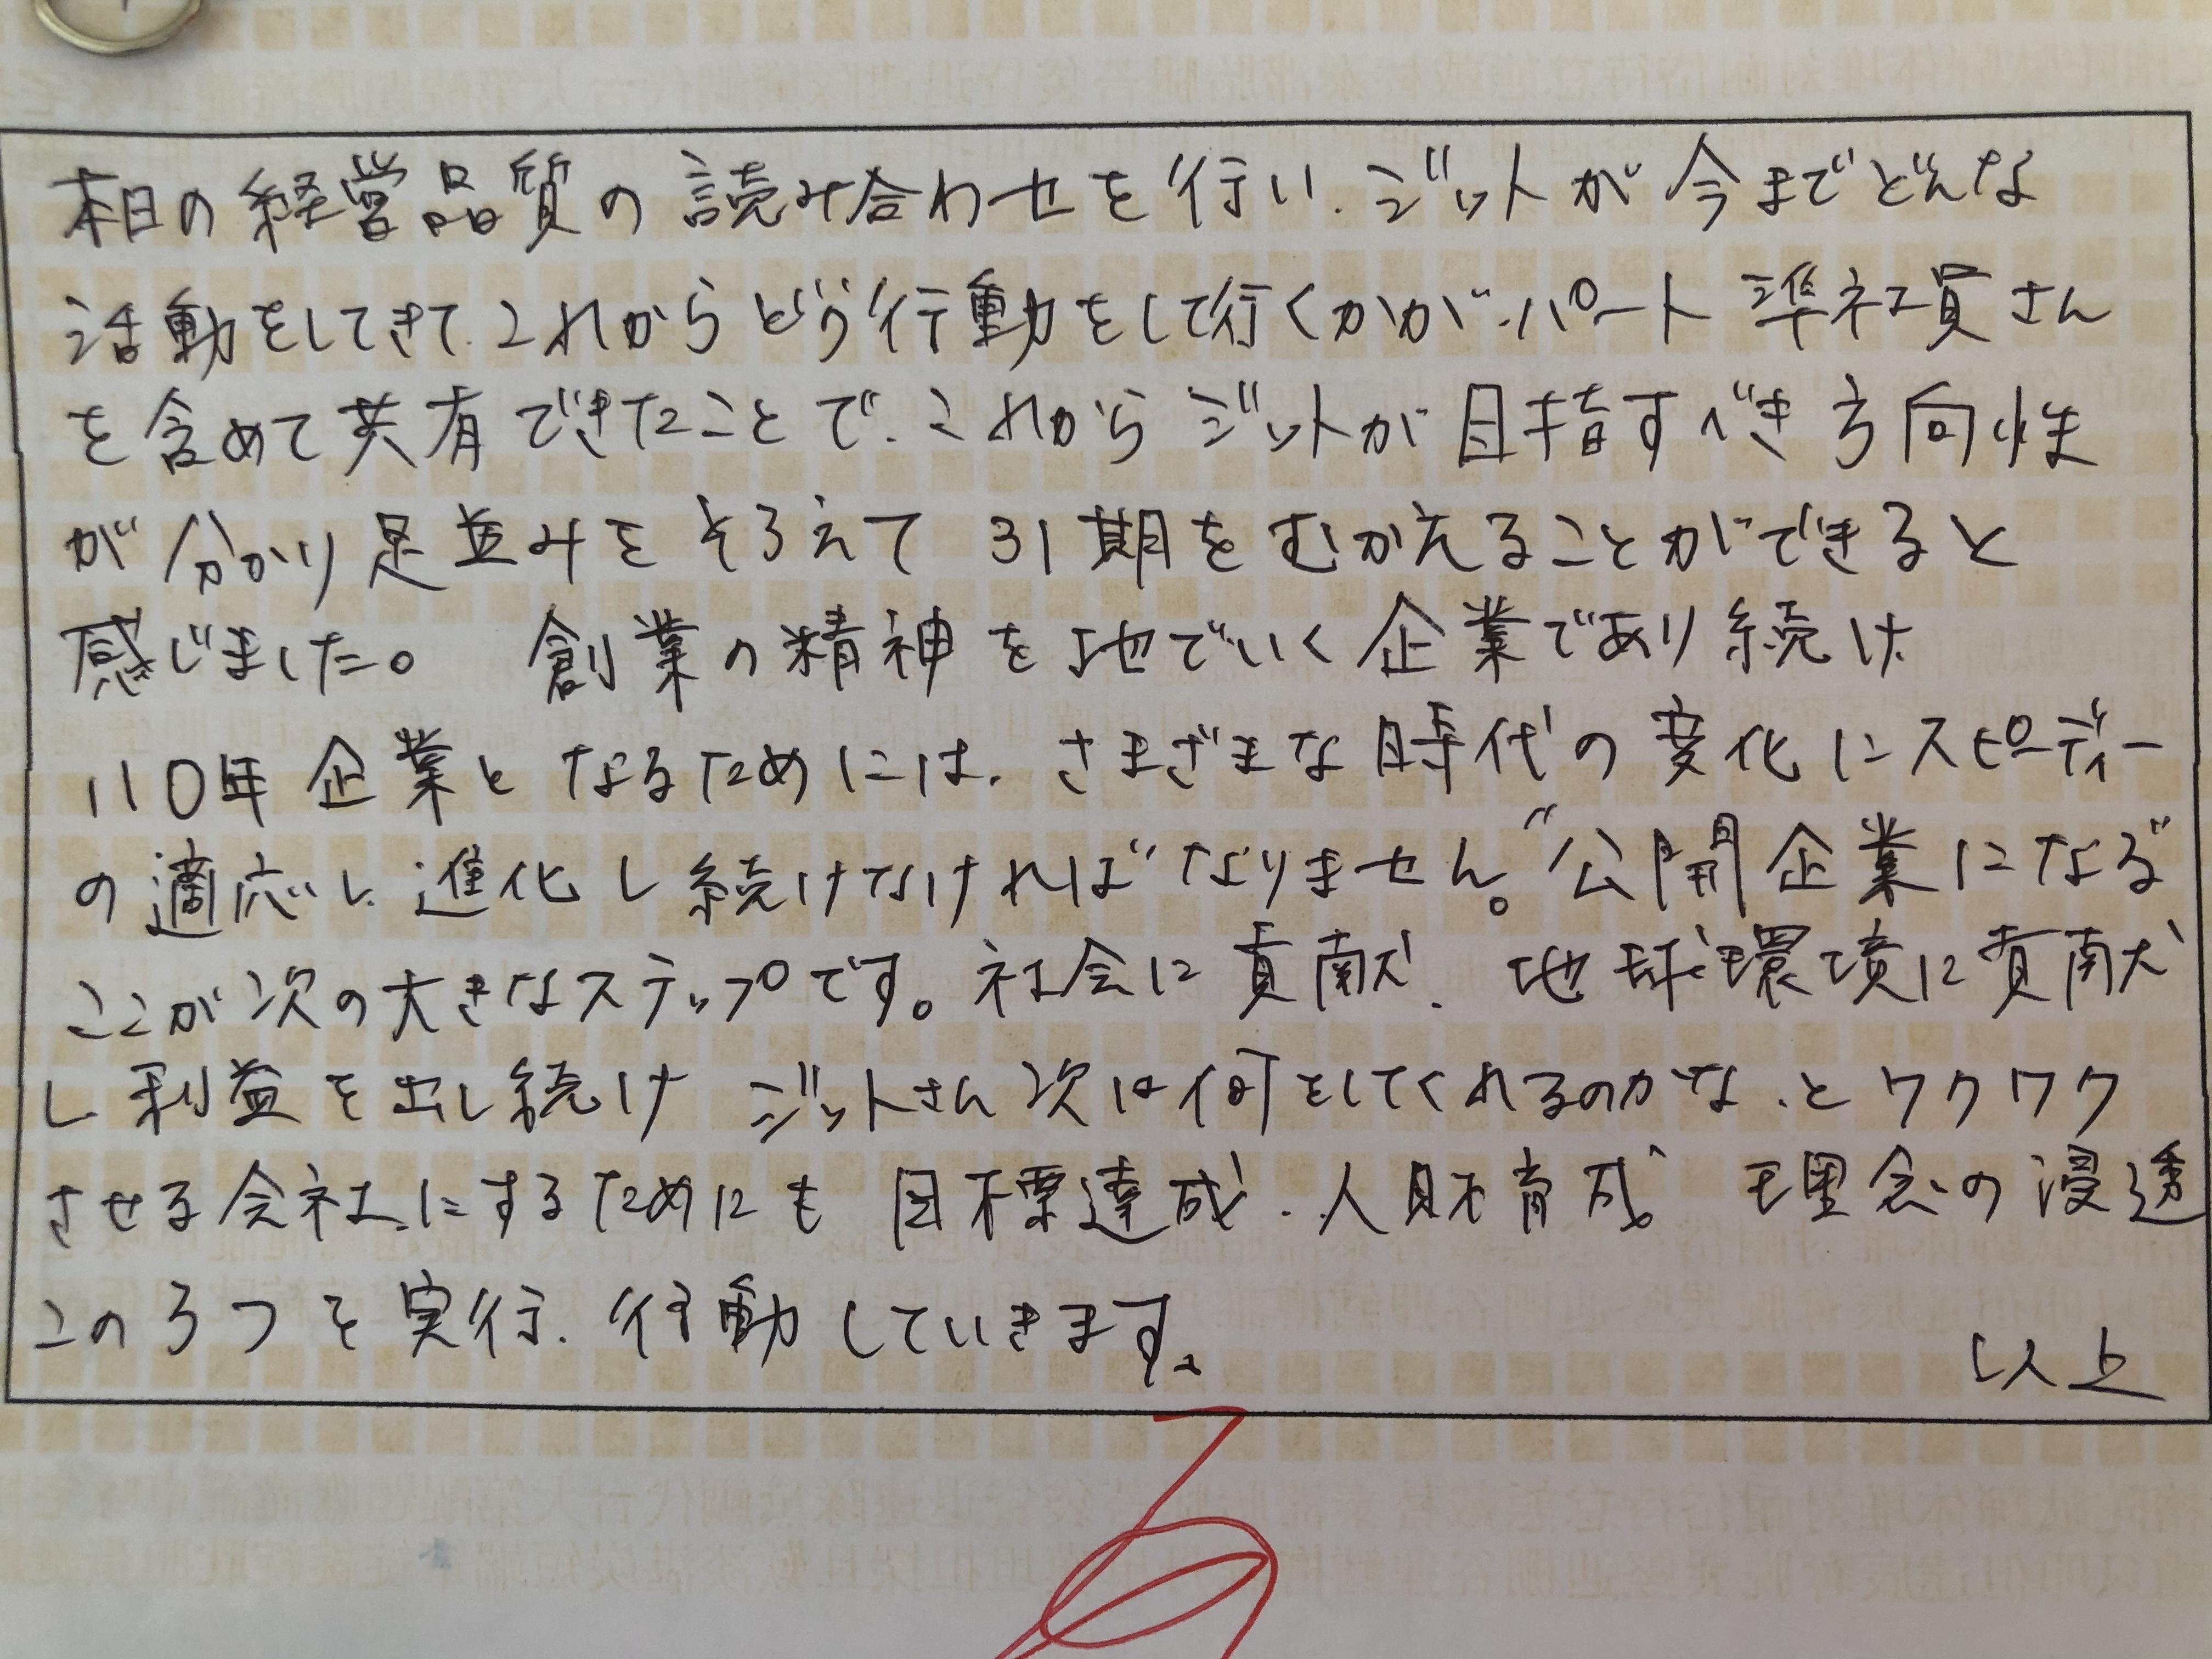 本日の経営品質の読み合わせを行い、ジットが今までどんな
活動をしてきて、これからどう行動をして行くかが、パート準社員さん
を含めて共有できたことで、これからジットが目指すべき方向性
が分かり足並みをそろえて 31期をむかえることができると
感じました。 創業の精神を地でいく企業であり続け
110年企業となるためには、さまざまな時代の変化にスピーディー
の適応し、進化し続けなければなりません。"公開企業になる"
ここが次の大きなステップです。社会に貢献、地球環境に貢献
し利益を出し続け ジットさん次は何をしてくれるのかな、とワクワク
させる会社にするためにも 目標達成、人財育成 理念の浸透
この3つを実行、行動していきます。
以上